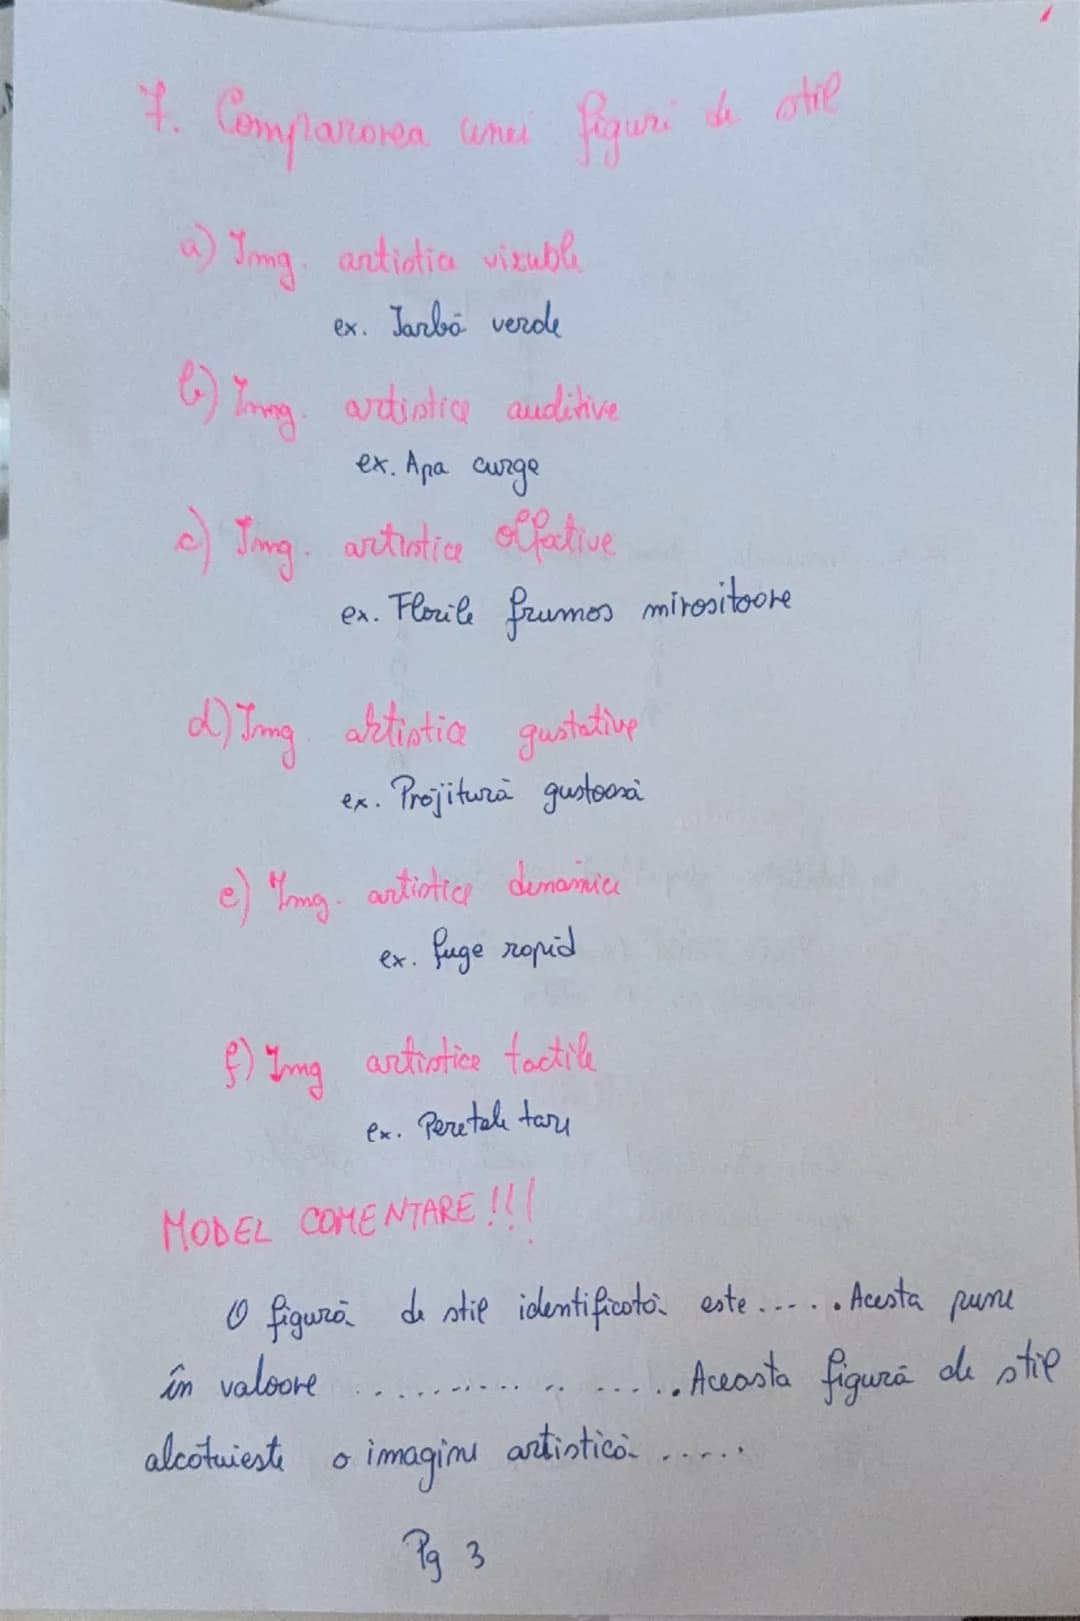 7. Compararea unei figuri de stil
a) Img. artistice vizuale
ex. Iarbă verde
b) Img. artistice auditive
ex. Apa curge
c) Img. artistice olfactive
ex. Florile frumos mirositoare
d) Img. artistice gustative
ex. Prăjitură gustoasă
e) Img. artistice dinamice
ex. fuge rapid
f) Img artistice tactile
ex. Peretele tare
MODEL COMENTARE!!!
O figură de stil identificată este...... Acesta pune
în valoare .................. Aceasta figură de stil
alcătuieste o imagine artistică .....
Pg 3